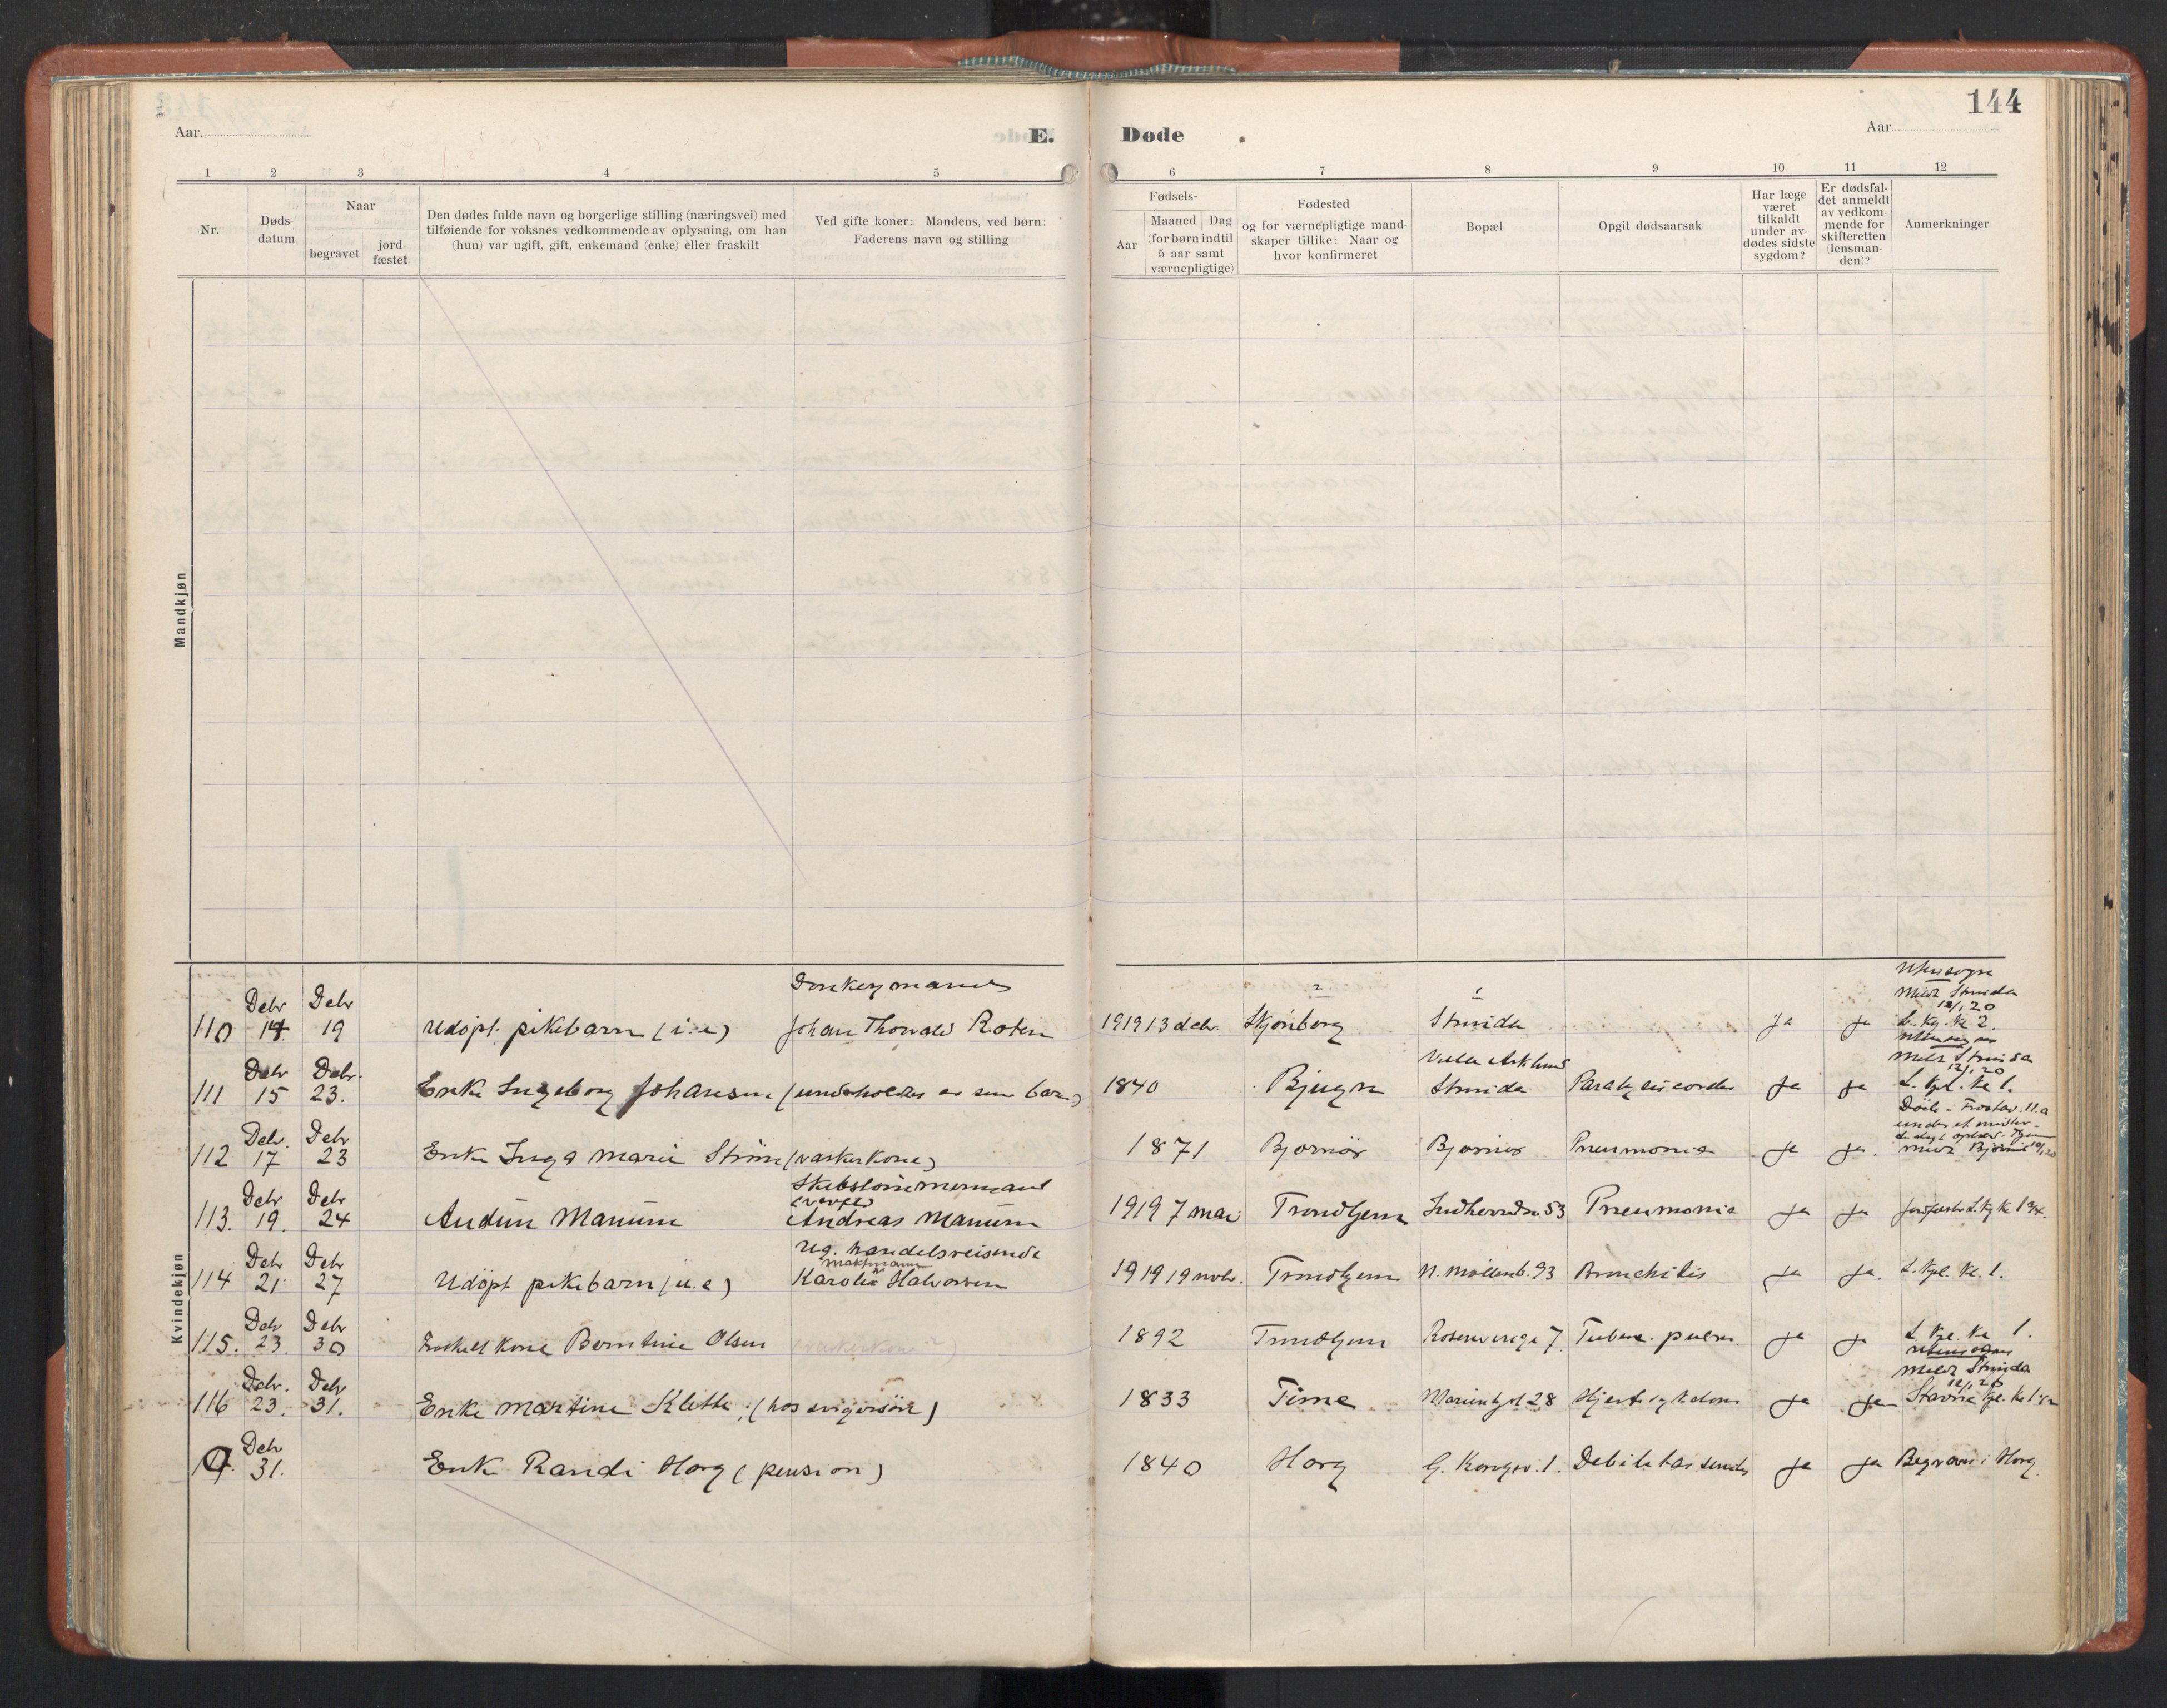 144
Aar
E. Døde
Aar
1 2 3 4 5 6 7 8 9 10 11 12
Nr.
Døds-
datum
Naar
begravet
jord-
fæstet
Den dødes fulde navn og borgerlige stilling (næringsvei) med
tilføiende for voksnes vedkommende av oplysning, om han
(hun) var ugift, gift, enkemand (enke) eller fraskilt
Ved gifte koner: Mandens, ved børn:
Faderens navn og stilling
Fødsels-
Aar
Maaned Dag
(for børn indtil
5 aar samt
værnepligtige)
Fødested
og for værnepligtige mand-
skaper tillike: Naar og
hvor konfirmeret
Bopæl
Opgit dødsaarsak
Har læge
været
tilkaldt
under av-
dødes sidste
sygdom?
Er dødsfal-
det anmeldt
av vedkom-
mende for
skifteretten
(lensman-
den)?
Anmerkninger
Mandkjøn
Kvindekjøn
Donkeymand
Utensogns
Meldt Strinda
12/1 20
Debr Debr
110 14. 19 Udøpt pikebarn (i.e) Johan Thorvald Roten 1919 13 debr. Skjønberg Strinda Ja Ja L. Kg. Kl 2.
Debr Debr. Meldt Strinda
12/1 20
111 15 23. Enke Ingeborg Johansen (underholdes av sine barn) 1840 Bjugn Strinda Paralysis cordis Ja Ja L. Kpl. Kl 1.
Debr. Debr Døde i
112 17 23 Enke Inga Marie Strøm (vaskerkone) 1871 Bjørnør Bjørnør Pneumonia Ja Ja. Meldt Bjørnør
Debr Debr Skibstømmermand
113. 19. 24 Audun Manum Andreas Manum 1919 7 mai Trondhjem Indherredsv 53 Pneumonia Ja Ja
Debr Debr handelsreisende
114 21. 27 Udøpt pikebarn (u.e) Karolius Halvorsen 1919 19 novbr. Trondhjem N. Møllenb. 93 Bronchitis Ja Ja. L. Kpl. Kl. 1.
Debr Debr
115. 23. 30 Fraskilt kone Berntine Olsen 1892 Trondhjem 7. Tuberc. pulm. Ja Ja L. Kpl. Kl 1.
Utensogns
Meldt Strinda
12/1 20
Debr. Debr
116 23. 31. Enke Martine Klette, (hos svigersøn) 1833 Time 28 Hjertesykdom Ja Ja Stavne Kpl. Kl 1
Debr
31. Enke Randi Horg (pension) 1840 Horg G. Kongev. 1. Debilitas senilis Ja Ja Begravet i Horg.